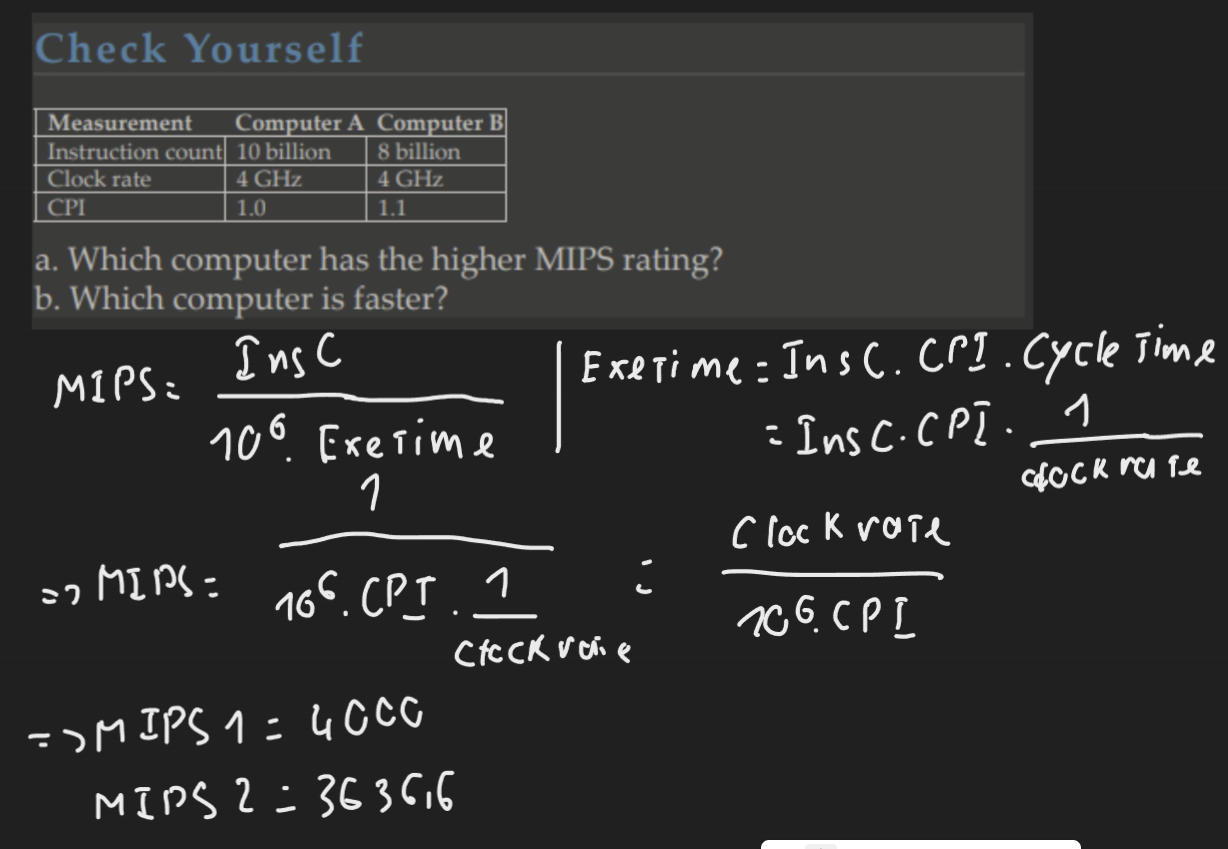 Check Yourself
Measurement Computer A Computer B
Instruction count 10 billion 8 billion
Clock rate 4 GHz 4 GHz
CPI 1.0 1.1
a. Which computer has the higher MIPS rating?
b. Which computer is faster?
MIPS = InsC / 10^6 . ExeTime | ExeTime = InsC . CPI . Cycle Time
= InsC . CPI . 1 / clock rate
=> MIPS = 1 / 10^6 . CPI . 1 / Clock rate = Clock rate / 10^6 . CPI
=> MIPS 1 = 4000
MIPS 2 = 3636,6